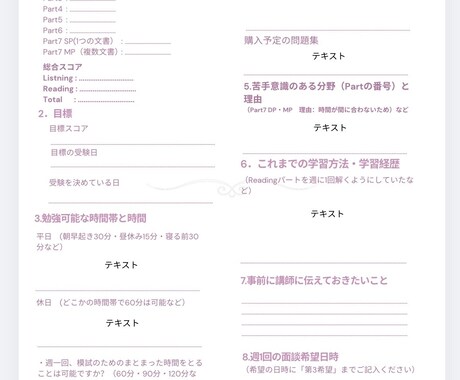 Part4 :
Part5 :
Part6 :
Part7 SP(1つの文書） :
Part7 MP（複数文書）:
総合スコア
Listning :
Reading :
Total :
2．目標
目標スコア
目標の受験日
受験を決めている日
3.勉強可能な時間帯と時間
平日 （朝早起き30分・昼休み15分・寝る前30
分など）
テキスト
休日 （どこかの時間帯で60分は可能など）
テキスト
・週一回、模試のためのまとまった時間をとる
ことは可能ですか？（60分・90分・120分な
購入予定の問題集
テキスト
5.苦手意識のある分野（Partの番号）と
理由
（Part7 DP・MP 理由：時間が間に合わないため）など
テキスト
6．これまでの学習方法・学習経歴
（Readingパートを週に1回解くようにしていたな
ど）
テキスト
7.事前に講師に伝えておきたいこと
8.週1回の面談希望日時
（希望の日時に「第3希望」までご記入ください）